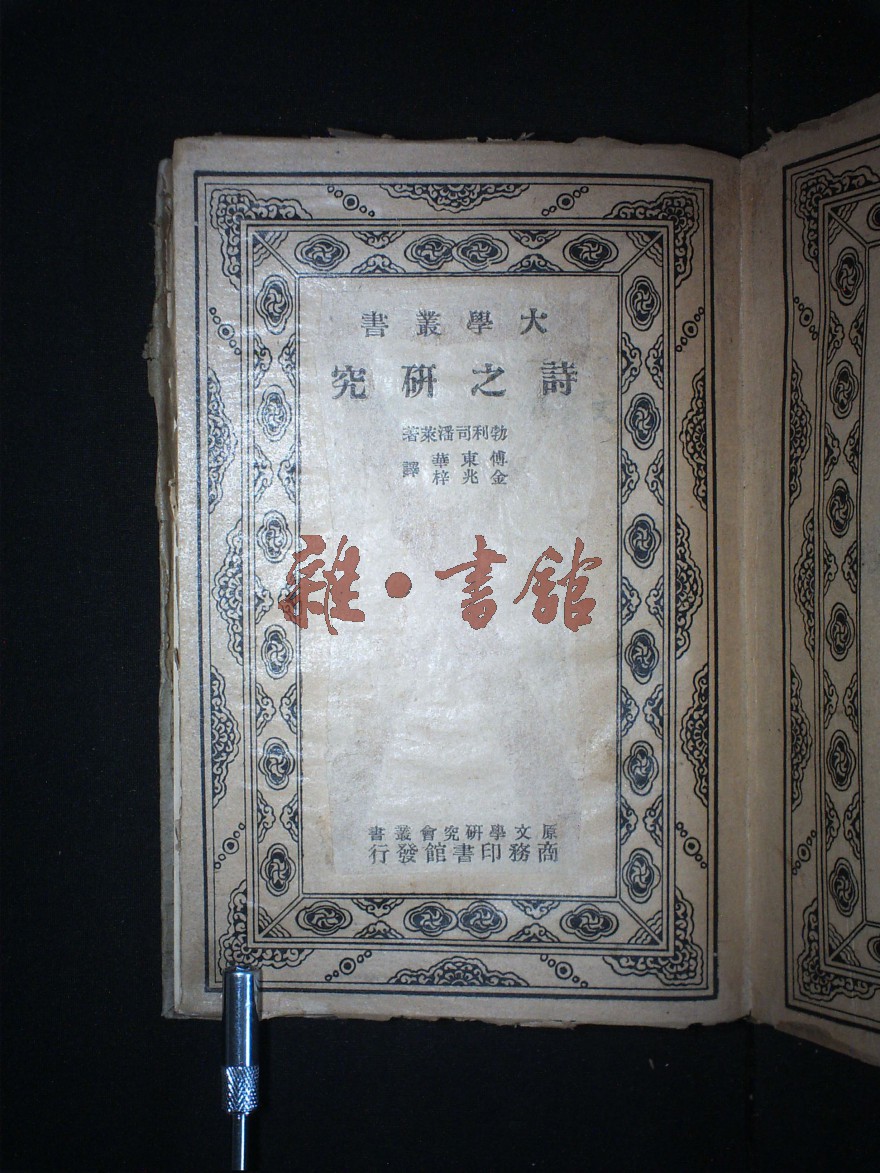 大學叢書
詩之研究
勃利司潘萊著
傅東華
金兆梓
譯
雜·書館
原文學研究會叢書
商務印書館發行